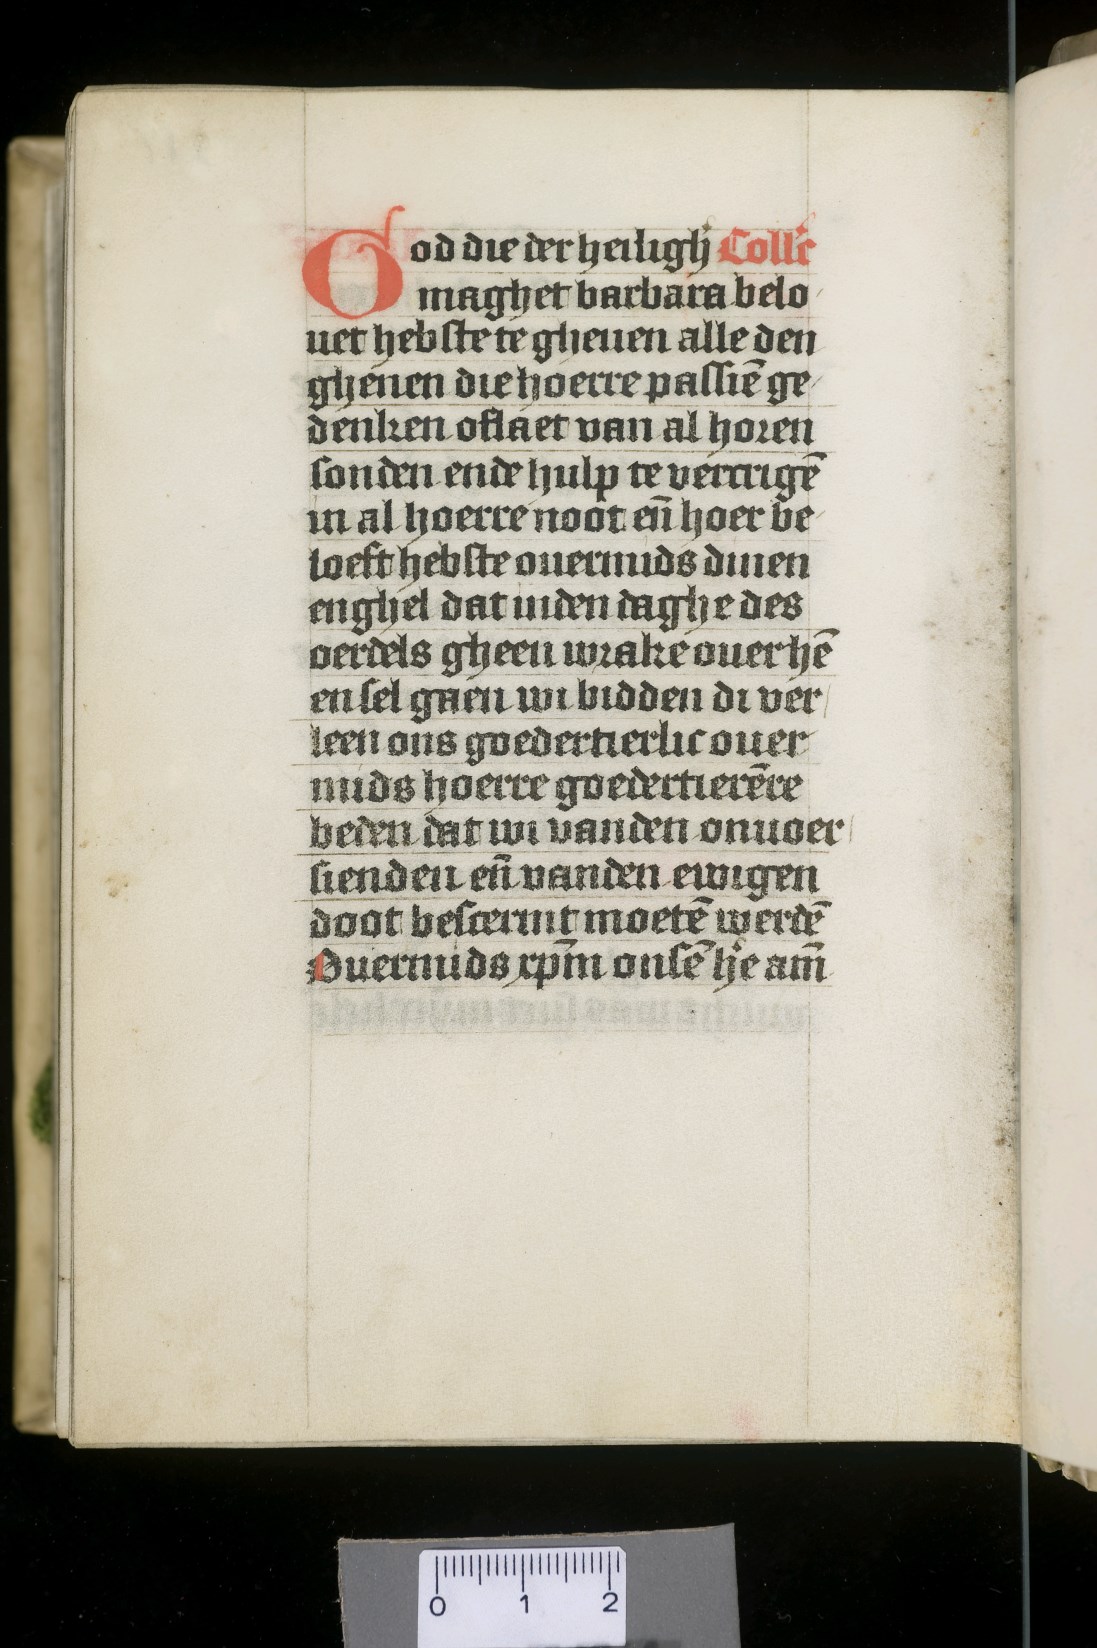 God die der heiligh̾ Coll̾c
maghet barbara belo
uet hebste te gheuen alle den
ghenen die hoerre passiē ge
denken oflaet van al horen
sonden ende hulp te vercrigē
in al hoerre noot en̄ hoer be
loeft hebste ouermids dinen
enghel dat inden daghe des
oerdels gheen wrake ouer hē
en sel gaen wi bidden di ver
leen ons goedertierlic ouer
mids hoerre goedertierēre
beden dat wi vanden onuoer
sienden en̄ vanden ewigen
doot bescermt moetē werdē
Ouermids xp̄m onsē h̾e am̄
0 1 2